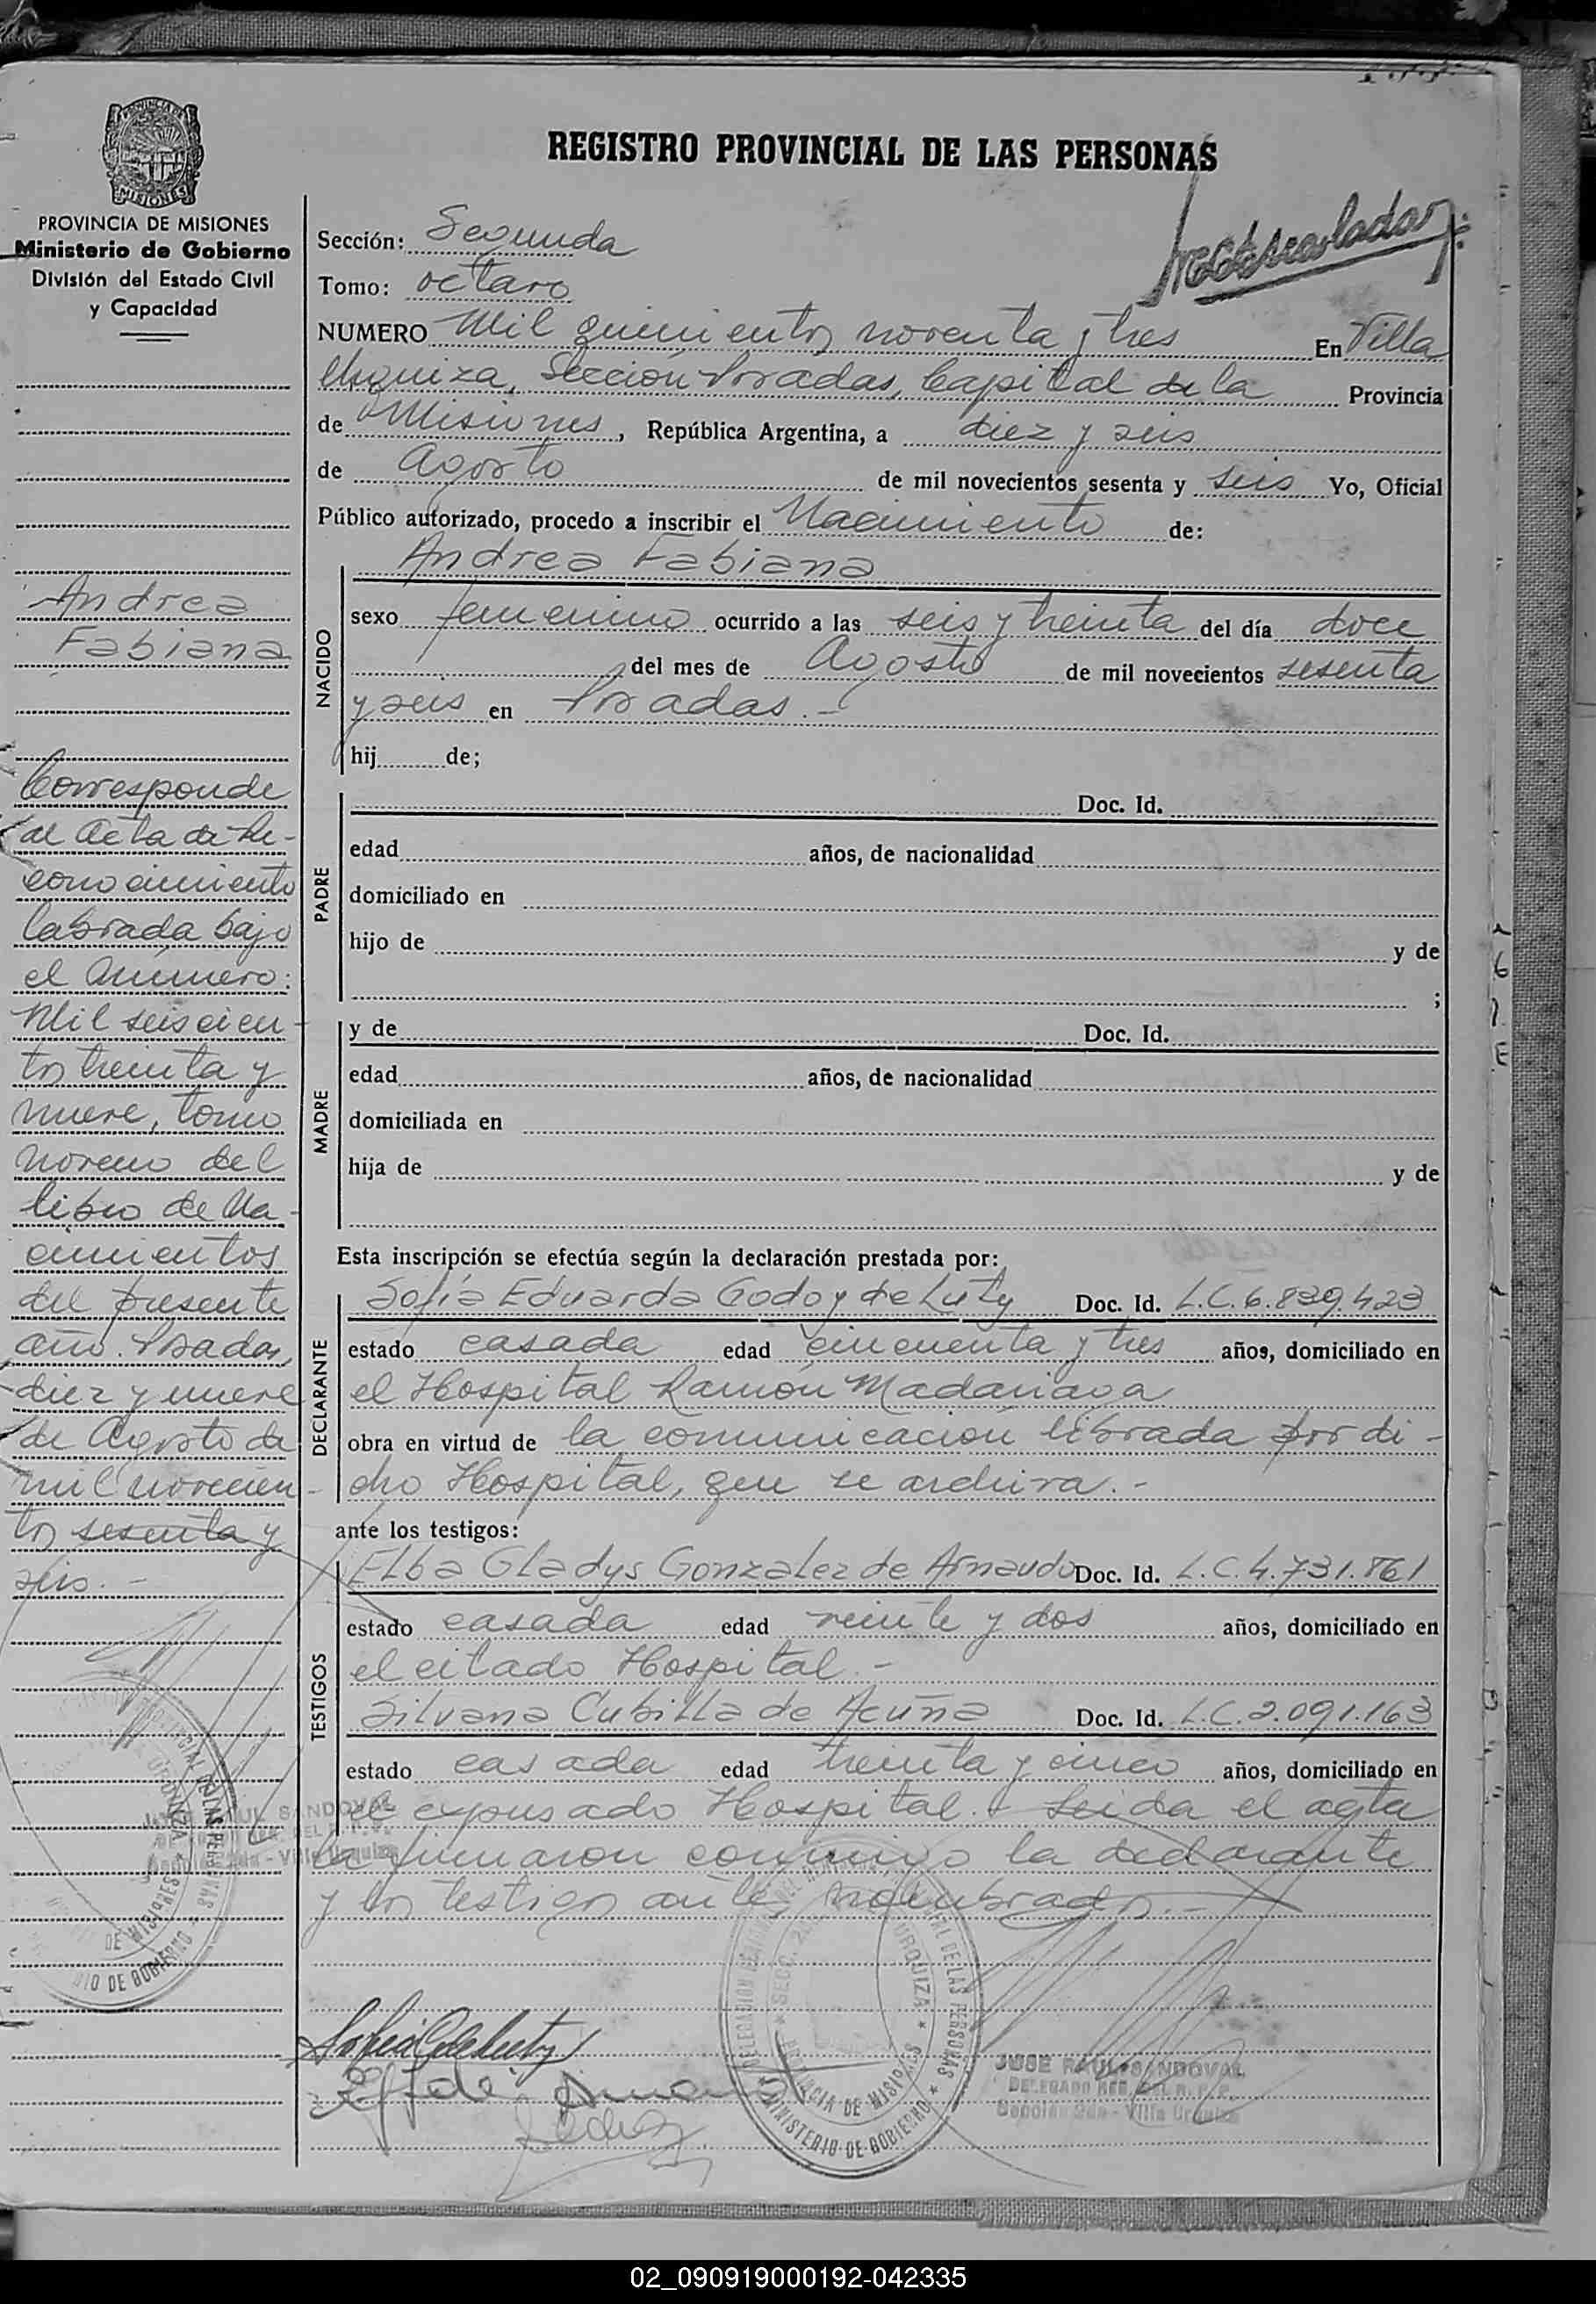 REGISTRO PROVINCIAL DE LAS PERSONAS
MISIONES
PROVINCIA DE MISIONES
Ministerio de Gobierno
División del Estado Civil
y Capacidad
Andrea
Fabiana
Corresponde
al Acta de Re-
conocimiento
labrada bajo
el número:
Mil seiscien-
tos treinta y
nueve, tomo
noveno del
libro de Na-
cimientos
del presente
año. Posadas,
diez y nueve
de Agosto de
mil novecien-
tos sesenta y
seis.-
Sección: Segunda
Tomo: octavo
NUMERO Mil quinientos noventa y tres En Villa
Urquiza, Sección Posadas, Capital de la Provincia
de Misiones, República Argentina, a diez y seis
de Agosto de mil novecientos sesenta y seis Yo, Oficial
Público autorizado, procedo a inscribir el Nacimiento de:
NACIDO
Andrea Fabiana
sexo femenino ocurrido a las seis y treinta del día doce
del mes de Agosto de mil novecientos sesenta
y seis en Posadas.-
hij de;
PADRE
Doc. Id.
edad años, de nacionalidad
domiciliado en
hijo de y de
;
MADRE
y de Doc. Id.
edad años, de nacionalidad
domiciliada en
hija de y de
Esta inscripción se efectúa según la declaración prestada por:
DECLARANTE
Sofía Eduarda Godoy de Luty Doc. Id. L.C.6.839.423
estado casada edad cincuenta y tres años, domiciliado en
el Hospital Ramón Madariaga
obra en virtud de la comunicación librada por di-
cho Hospital, que se archiva.-
ante los testigos:
TESTIGOS
Elba Gladys Gonzalez de Arnaudo Doc. Id. L.C.4.731.861
estado casada edad veinte y dos años, domiciliado en
el citado Hospital.-
Silvana Cubilla de Acuña Doc. Id. L.C.2.091.163
estado casada edad treinta y cinco años, domiciliado en
el expresado Hospital.- Leida el acta
la firmaron conmigo la declarante
y los testigos antes nombrados.-
JOSE RAUL SANDOVAL
Sección 2da - Villa Urquiza
MINISTERIO DE GOBIERNO
PROVINCIA DE MISIONES
JOSE RAUL SANDOVAL
DELEGADO REG. DEL R. P. P.
Sección 2da - Villa Urquiza
02_090919000192-042335